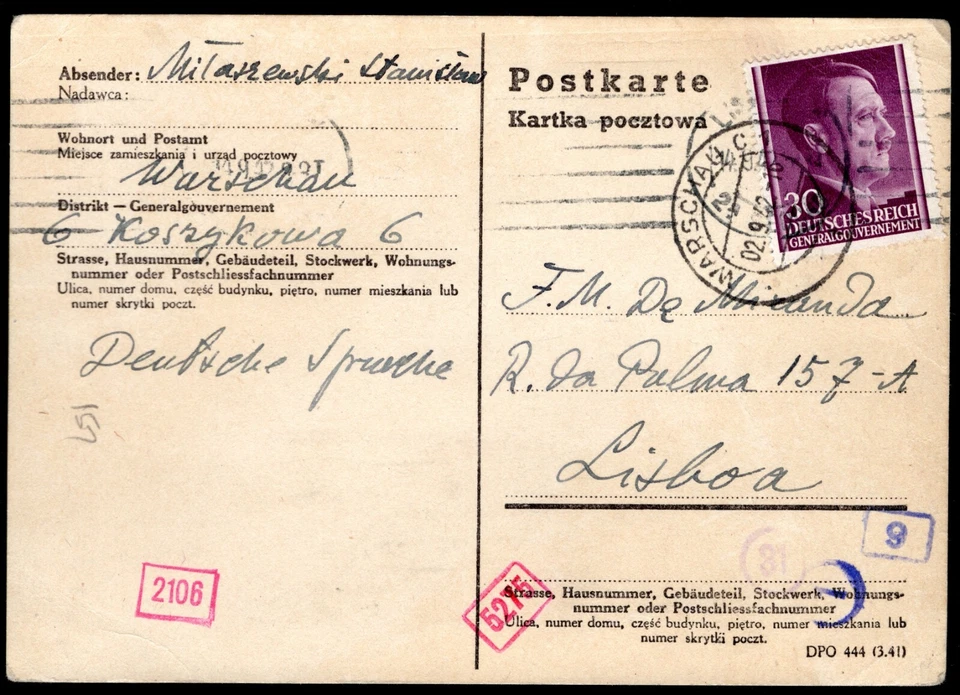 Absender: Miłaszewski Stanisław
Nadawca:
Wohnort und Postamt
Miejsce zamieszkania i urząd pocztowy
Warschau
Distrikt — Generalgouvernement
6 Koszykowa 6
Strasse, Hausnummer, Gebäudeteil, Stockwerk, Wohnungs-
nummer oder Postschliessfachnummer
Ulica, numer domu, część budynku, piętro, numer mieszkania lub
numer skrytki poczt.
Deutsche Sprache
2106
Postkarte
Kartka pocztowa
WARSCHAU C
02.9.42
30
DEUTSCHES REICH
GENERALGOUVERNEMENT
F. M. Da Miranda
R. da Palma 157-A
Lisboa
9
31
5275
Strasse, Hausnummer, Gebäudeteil, Stockwerk, Wohnungs-
nummer oder Postschliessfachnummer
Ulica, numer domu, część budynku, piętro, numer mieszkania lub
numer skrytki poczt.
DPO 444 (3.41)